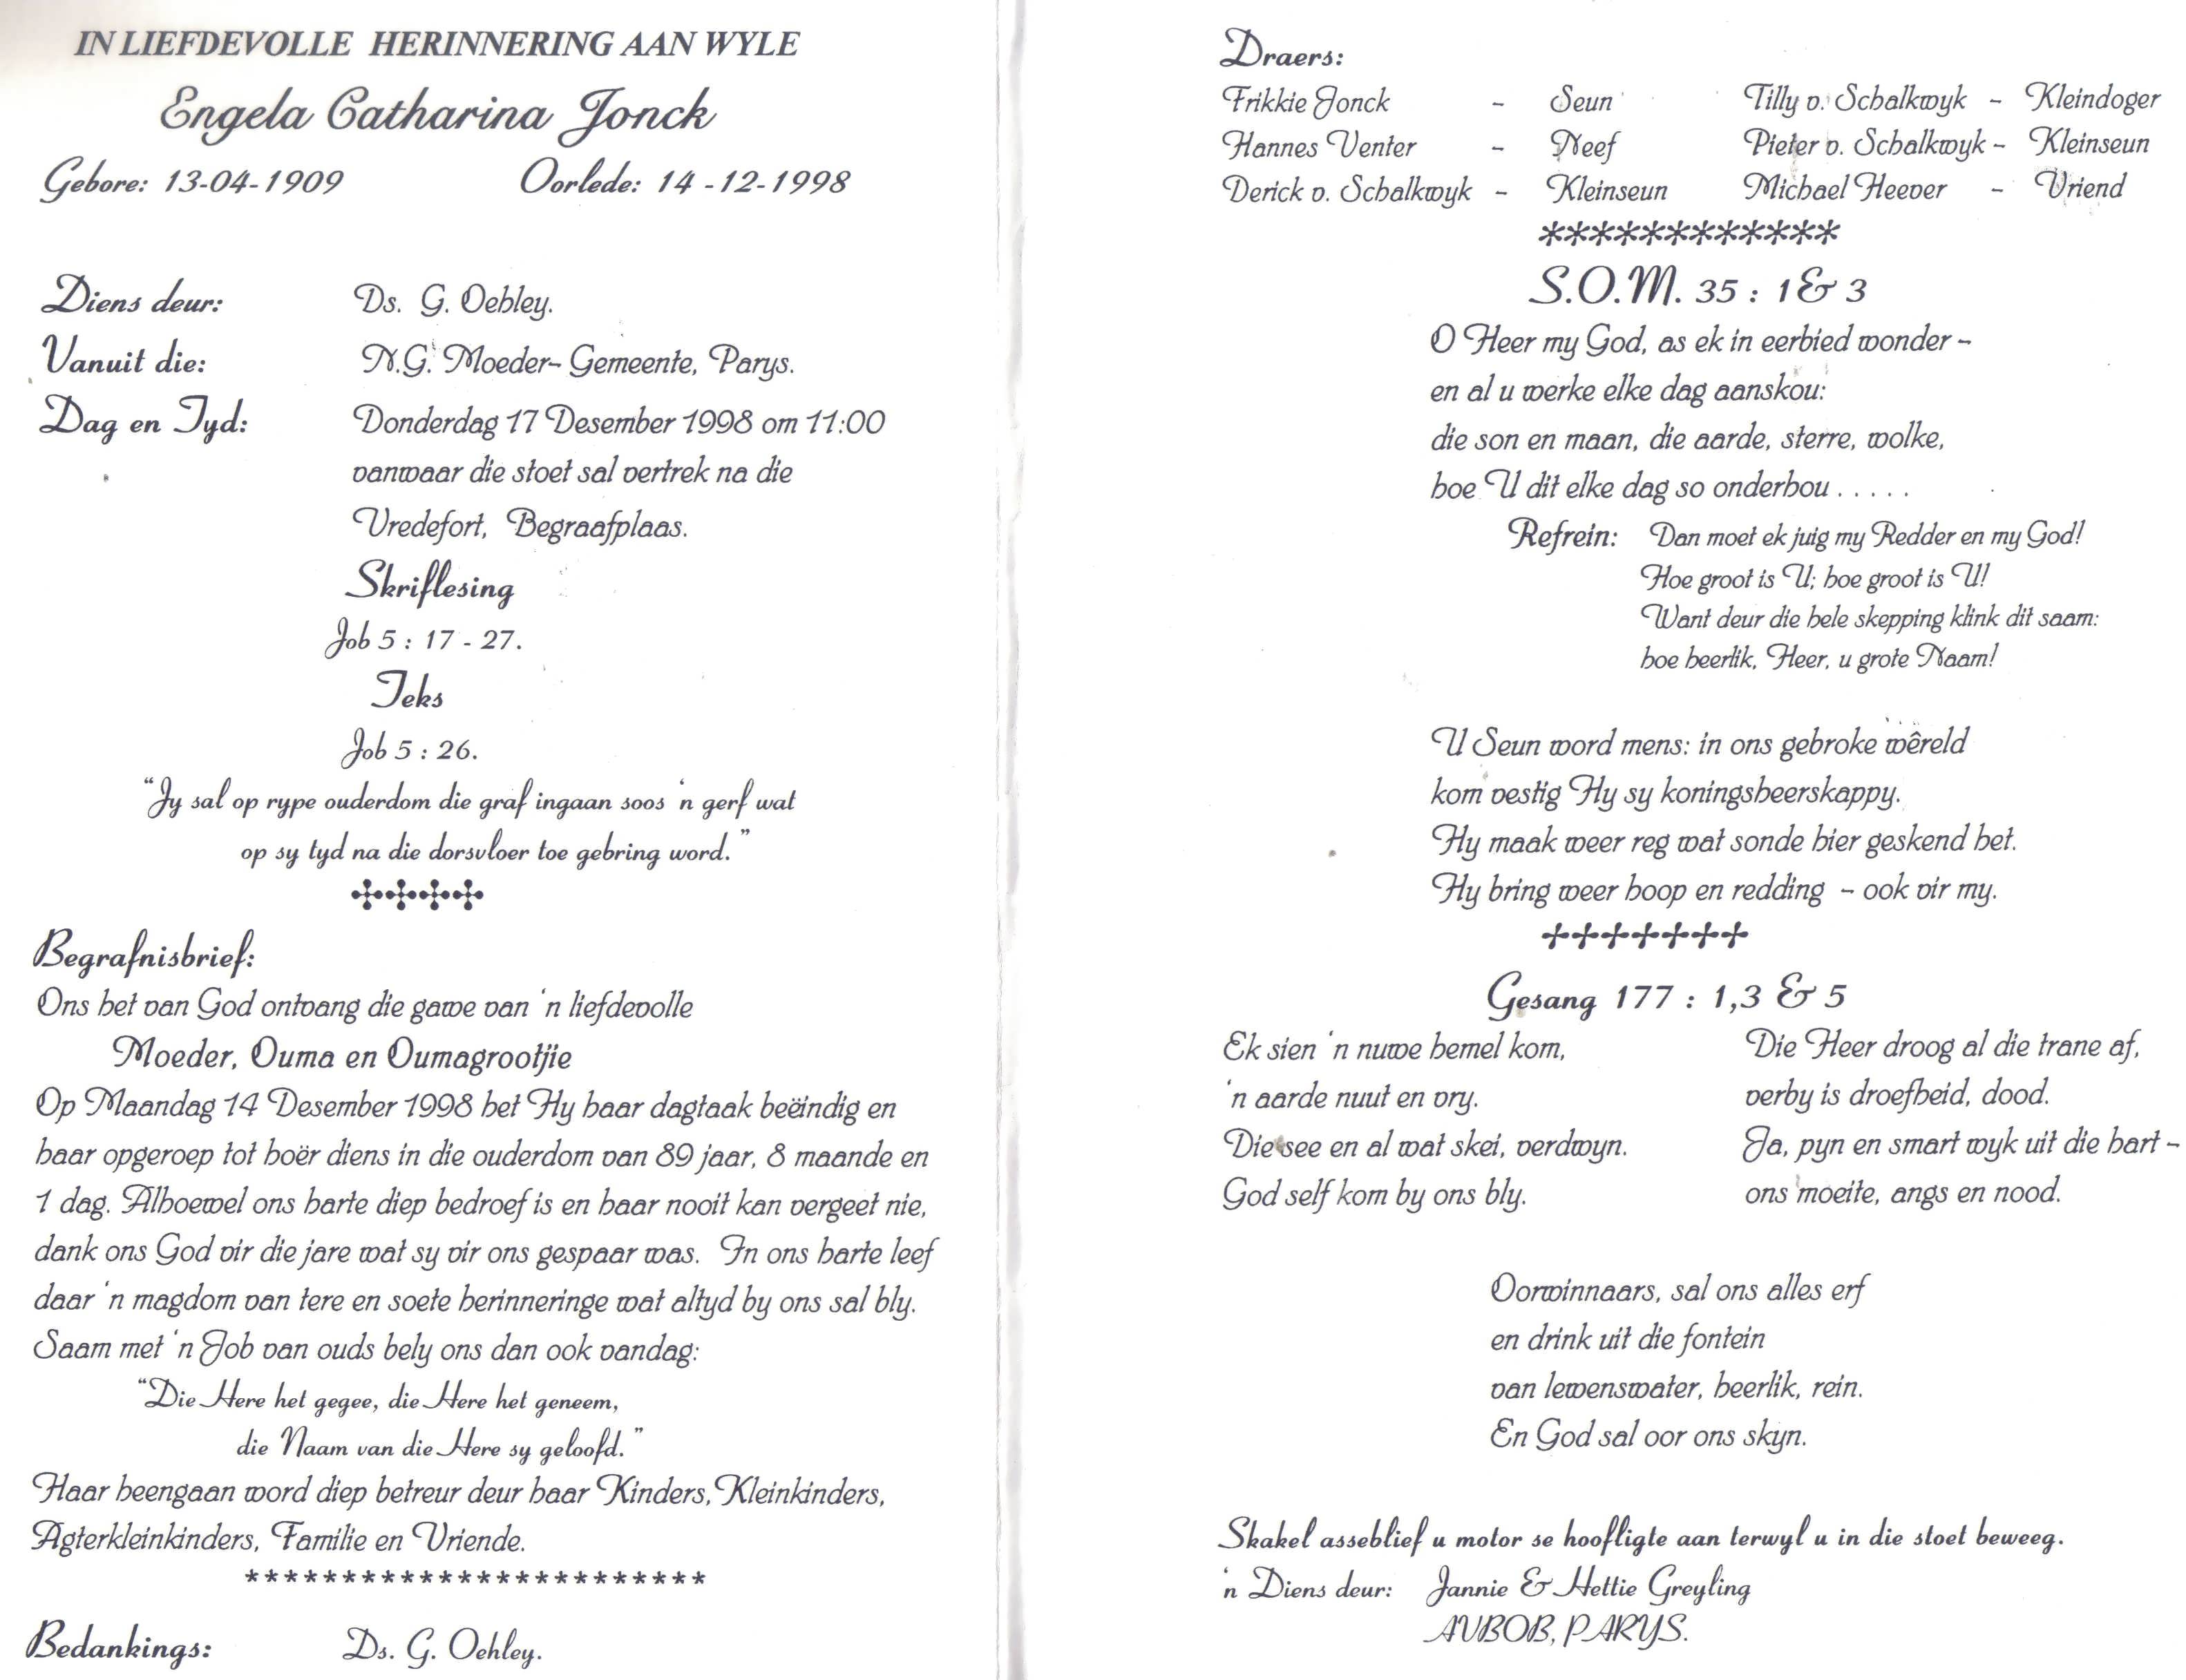 IN LIEFDEVOLLE HERINNERING AAN WYLE
Engela Catharina Jonck
Gebore: 13-04-1909 Oorlede: 14-12-1998
Diens deur: Ds. G. Oehley.
Vanuit die: N.G. Moeder-Gemeente, Parys.
Dag en Tyd: Donderdag 17 Desember 1998 om 11:00
vanwaar die stoet sal vertrek na die
Vredefort, Begraafplaas.
Skriflesing
Job 5 : 17 - 27.
Teks
Job 5 : 26.
"Jy sal op rype ouderdom die graf ingaan soos 'n gerf wat
op sy tyd na die dorsvloer toe gebring word."
Begrafnisbrief:
Ons het van God ontvang die gawe van 'n liefdevolle
Moeder, Ouma en Oumagrootjie
Op Maandag 14 Desember 1998 het Hy haar dagtaak beëindig en
haar opgeroep tot hoër diens in die ouderdom van 89 jaar, 8 maande en
1 dag. Alhoewel ons harte diep bedroef is en haar nooit kan vergeet nie,
dank ons God vir die jare wat sy vir ons gespaar was. In ons harte leef
daar 'n magdom van tere en soete herinneringe wat altyd by ons sal bly.
Saam met 'n Job van ouds bely ons dan ook vandag:
"Die Here het gegee, die Here het geneem,
die Naam van die Here sy geloofd."
Haar heengaan word diep betreur deur haar Kinders, Kleinkinders,
Agterkleinkinders, Familie en Vriende.
************************
Bedankings: Ds. G. Oehley.
Draers:
Frikkie Jonck - Seun Tilly v. Schalkwyk - Kleindoger
Hannes Venter - Neef Pieter v. Schalkwyk - Kleinseun
Derick v. Schalkwyk - Kleinseun Michael Heever - Vriend
************
S.O.M. 35 : 1 & 3
O Heer my God, as ek in eerbied wonder -
en al u werke elke dag aanskou:
die son en maan, die aarde, sterre, wolke,
hoe U dit elke dag so onderhou . . . . .
Refrein: Dan moet ek juig my Redder en my God!
Hoe groot is U; hoe groot is U!
Want deur die hele skepping klink dit saam:
hoe heerlik, Heer, u grote Naam!
U Seun word mens: in ons gebroke wêreld
kom vestig Hy sy koningsheerskappy.
Hy maak weer reg wat sonde hier geskend het.
Hy bring weer hoop en redding - ook vir my.
Gesang 177 : 1,3 & 5
Ek sien 'n nuwe hemel kom,
'n aarde nuut en vry.
Die see en al wat skei, verdwyn.
God self kom by ons bly.
Die Heer droog al die trane af,
verby is droefheid, dood.
Ja, pyn en smart wyk uit die hart -
ons moeite, angs en nood.
Oorwinnaars, sal ons alles erf
en drink uit die fontein
van lewenswater, heerlik, rein.
En God sal oor ons skyn.
Skakel asseblief u motor se hoofligte aan terwyl u in die stoet beweeg.
'n Diens deur: Jannie & Hettie Greyling
AVBOB, PARYS.